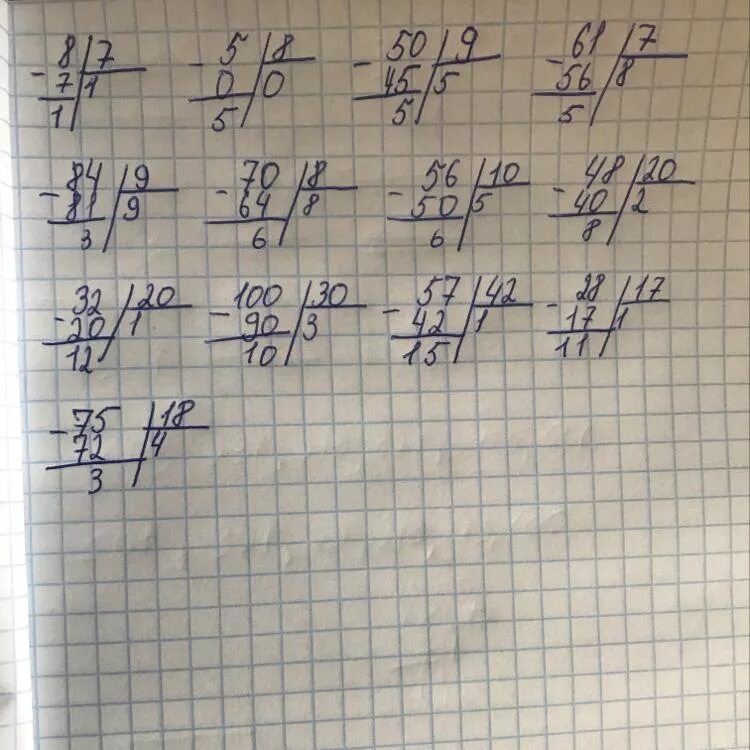 - 8 | 7   - 5 | 8   - 50 | 9   - 61 | 7
7 | 1   0 | 0   45 | 5   56 | 8
1   5   5   5
- 84 | 9   - 70 | 8   - 56 | 10   - 48 | 20
81 | 9   64 | 8   50 | 5   40 | 2
3   6   6   8
- 32 | 20   - 100 | 30   - 57 | 42   - 28 | 17
20 | 1   90 | 3   42 | 1   17 | 1
12   10   15   11
- 75 | 18
72 | 4
3